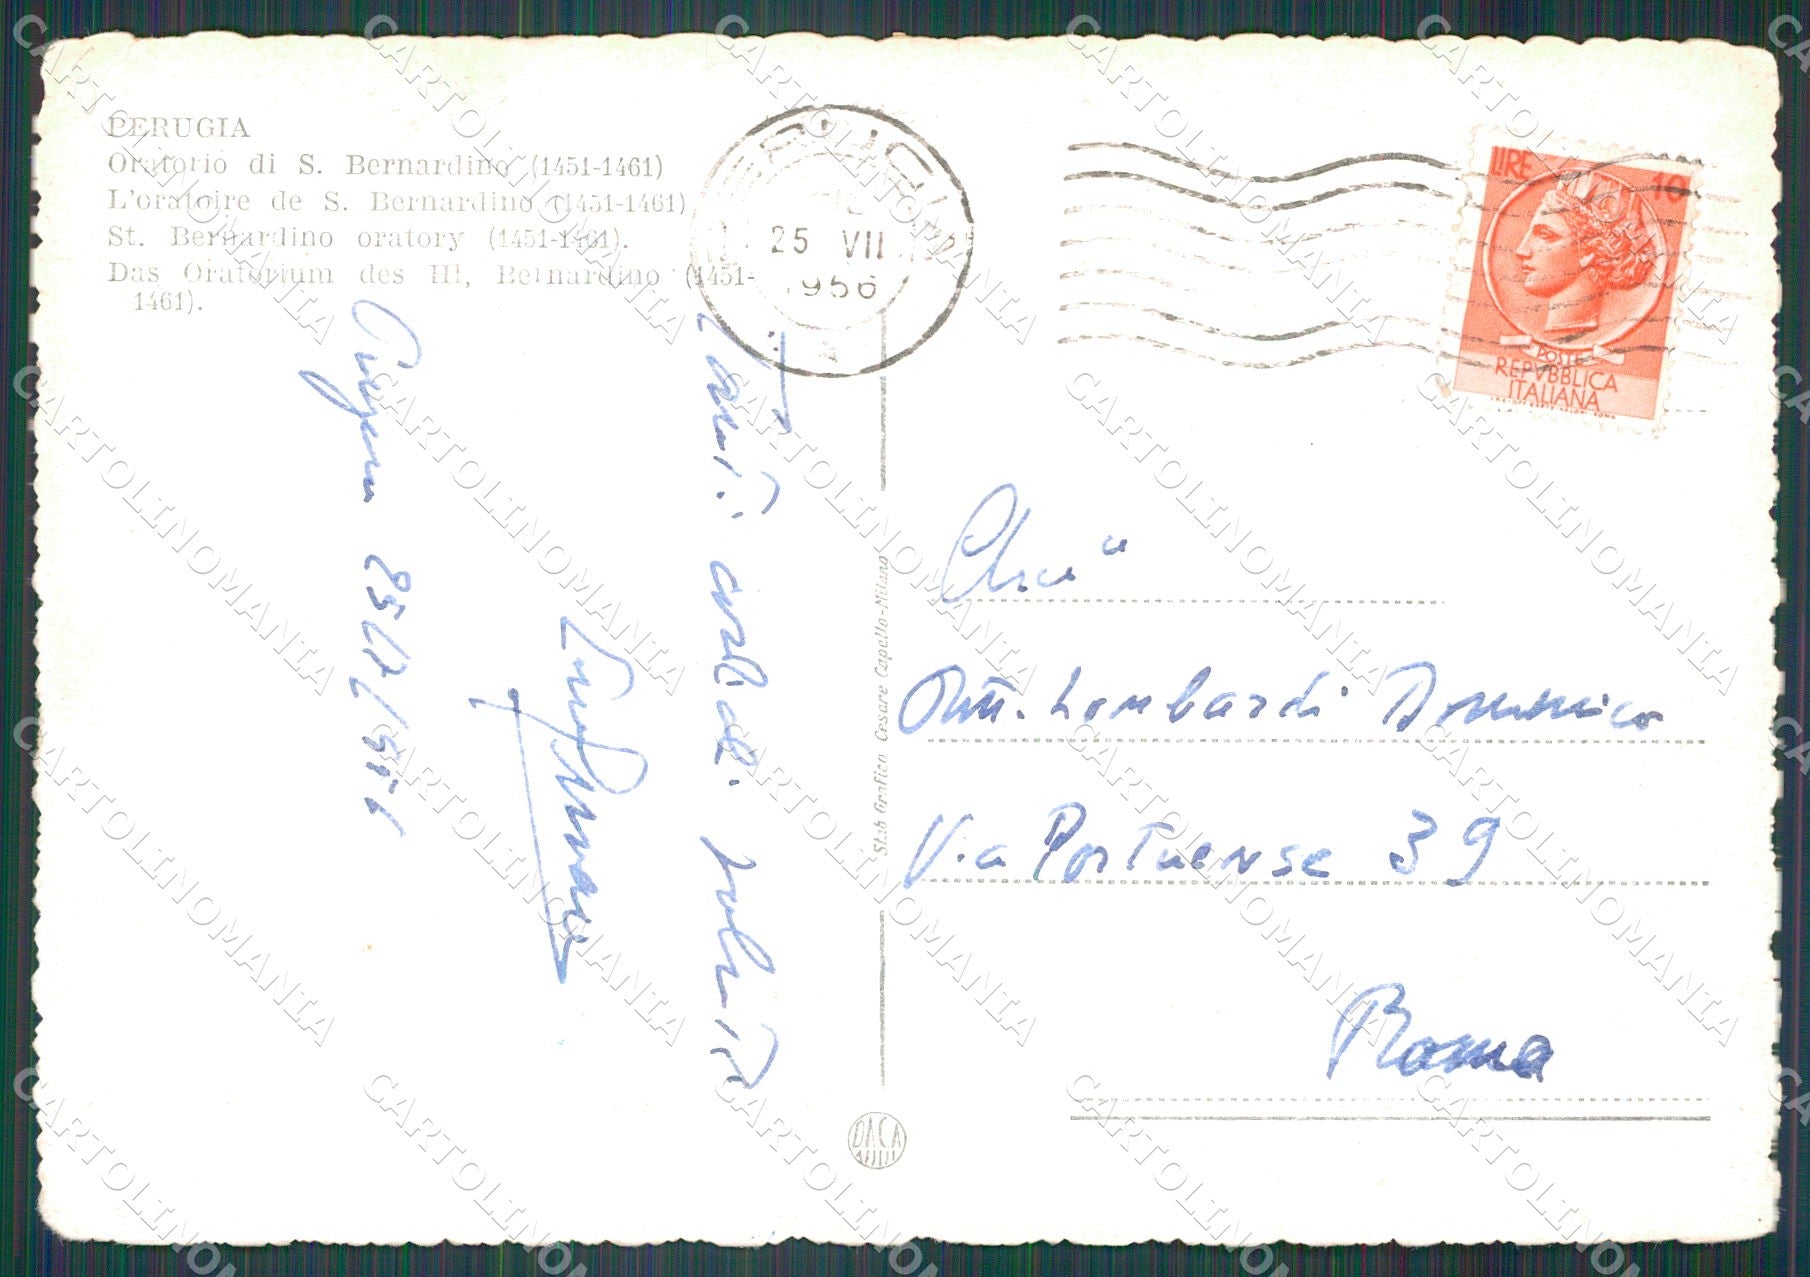 PERUGIA
Oratorio di S. Bernardino (1451-1461)
L'oratoire de S. Bernardino (1451-1461)
St. Bernardino oratory (1451-1461).
Das Oratorium des Hl, Bernardino (1451-
1461).
25 VII
1956
LIRE 10
POSTE
REPVBBLICA
ITALIANA
Tanti cordiali saluti
25/7/1956
Stab Grafico Cesare Capello-Milano
Dott. Lombardi Domenico
Via Portuense 39
Roma
DACA
CARTOLINOMANIA